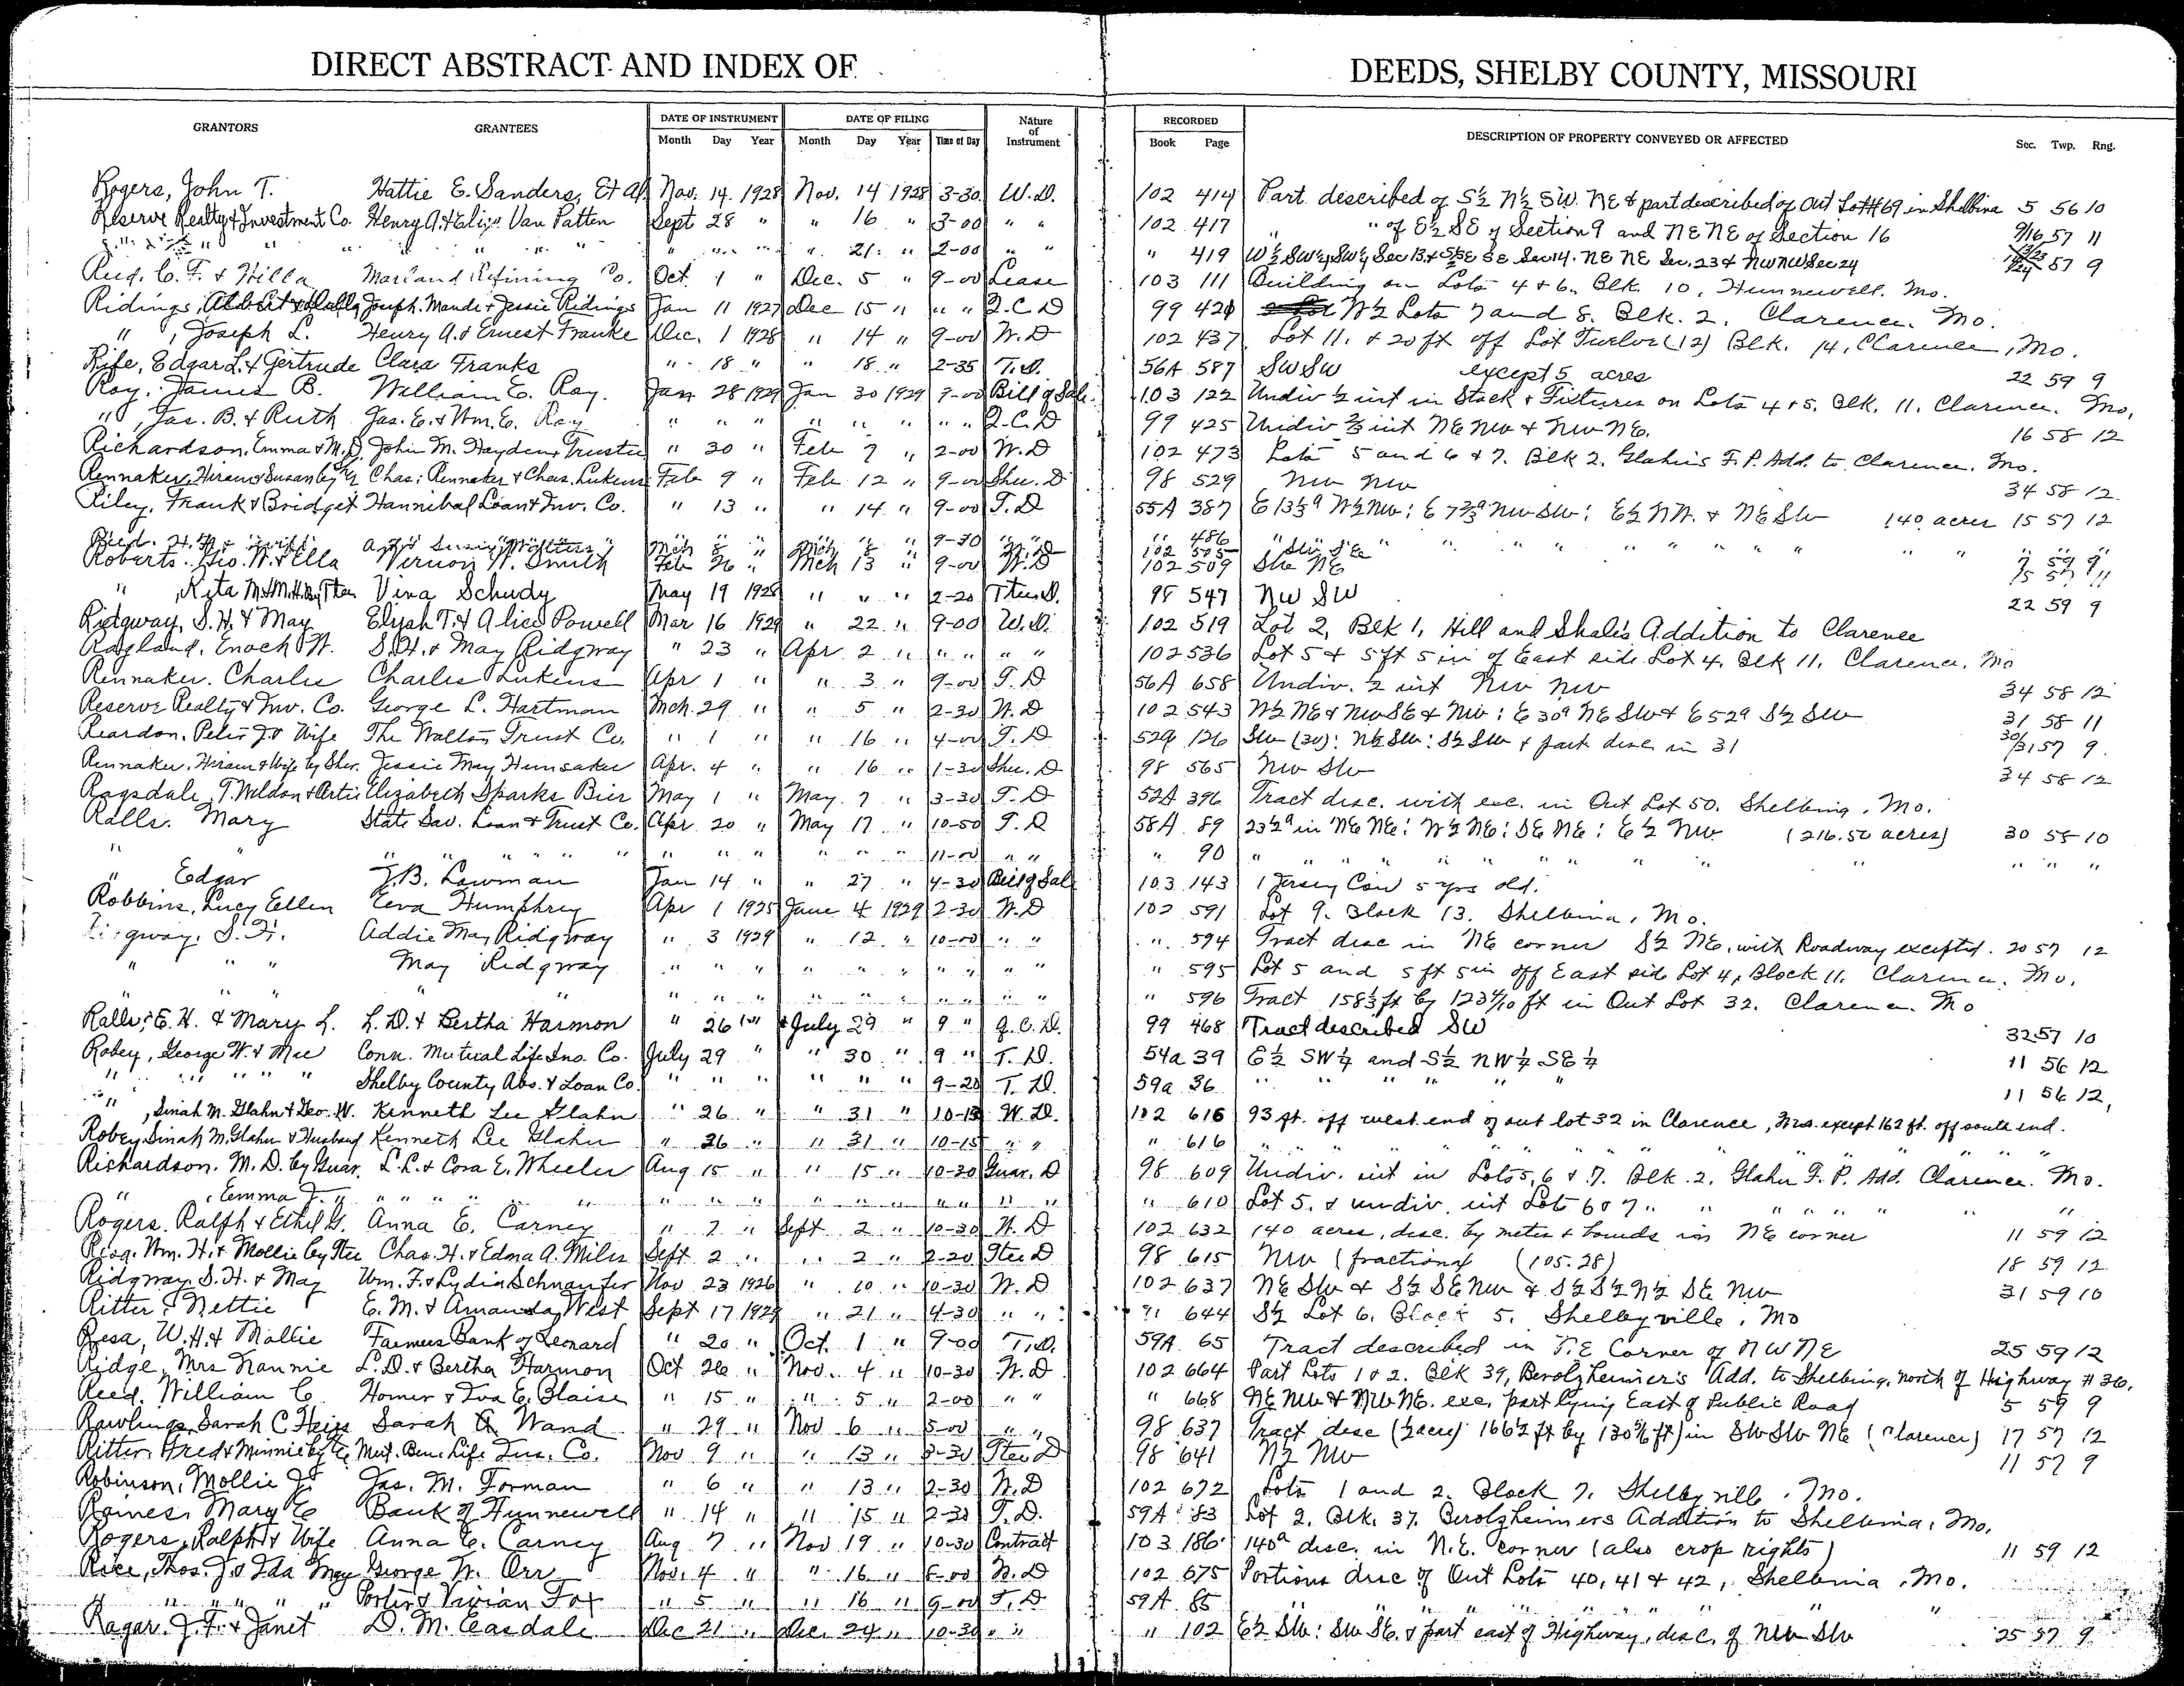 DIRECT ABSTRACT AND INDEX OF DEEDS, SHELBY COUNTY, MISSOURI
GRANTORS GRANTEES DATE OF INSTRUMENT Month Day Year DATE OF FILING Month Day Year Time of Day Nature of Instrument RECORDED Book Page DESCRIPTION OF PROPERTY CONVEYED OR AFFECTED Sec. Twp. Rng.
Rogers, John T. Hattie E. Sanders, Et Al Nov. 14. 1928 Nov. 14 1928 3-30 W.D. 102 414 Part described of S½ N½ SW. NE & part described of Out Lot #69 in Shelbina 5 56 10
Reserve Realty & Investment Co. Henry A. & Elize Van Patten Sept 28 " " 16 " 3-00 " " 102 417 " " of E½ SE of Section 9 and NE NE of Section 16 9/16 57 11
" " " " " " " " " " " " 21 " 2-00 " " " 419 W½ SW¼ SW¼ Sec 13 & SE SE Sec 14. NE NE Sec. 23 & NW NW Sec 24 57 9
C. F. & Willa Marland Refining Co. Oct. 1 " Dec. 5 " 9-00 Lease 103 111 Building on Lots 4 & 6. Blk. 10, Hunnewell. Mo.
Ridings, Joseph. Maude & Jessie Ridings Jan 11 1927 Dec 15 " " " Q.C.D 99 421 W½ Lots 7 and 8. Blk. 2. Clarence. Mo.
" , Joseph L. Henry A. & Ernest Franke Dec. 1 1928 " 14 " 9-00 W.D 102 437 Lot 11. & 20 ft off Lot Twelve (12) Blk. 14, Clarence, Mo.
Rife, Edgar L. & Gertrude Clara Franks " 18 " " 18 " 2-35 T.D. 56A 587 SW SW except 5 acres 22 59 9
Roy, James B. William E. Roy. Jan 28 1929 Jan 30 1929 9-00 Bill of Sale. 103 122 Undiv ½ int in Stock & Fixtures on Lots 4 & 5. Blk. 11. Clarence. Mo.
" , Jas. B. & Ruth Jas. E. & Wm. E. Roy " " " " " " " " Q.C.D 99 425 Undiv ⅔ int NE NW & NW NE. 16 58 12
Richardson, Emma & M.D. John M. Hayden, Trustee " 30 " Feb 7 " 2-00 W.D 102 473 Lots 5 and 6 & 7. Blk 2. Glahn's F.P. Add. to Clarence. Mo.
Rennaker, Hiram & Susan by Chas. Rennaker & Chas. Lukens Feb 9 " Feb 12 " 9-00 She. D 98 529 NW NW 34 58 12
Riley, Frank & Bridget Hannibal Loan & Inv. Co. " 13 " " 14 " 9-00 T.D 55A 387 E 13⅓ a W½ NW: E 7⅔ a NW SW: E½ NW. & NE SW 140 acres 15 57 12
" " " " " " 9-30 " " " 486 " " " " " " " " "
Roberts, Geo. W. & Ella Vernon W. Smith Feb 26 " Mch 13 " 9-00 W.D 102 509 SW NE 15 57 11
" , Rita M. & M.H. By Vina Schudy May 19 1928 " " " 2-20 98 547 NW SW 22 59 9
Ridgway, S.H. & May Elijah T. & Alice Powell Mar 16 1929 " 22 " 9-00 W.D. 102 519 Lot 2, Blk 1, Hill and Shale's Addition to Clarence
Ragland, Enoch W. S.H. & May Ridgway " 23 " Apr. 2 " " " " " 102 536 Lot 5 & 5 ft 5 in of East side Lot 4. Blk 11. Clarence. Mo
Rennaker. Charles Charles Lukens Apr 1 " " 3 " 9-00 T.D 56A 658 Undiv. ½ int NW NW 34 58 12
Reserve Realty & Inv. Co. George L. Hartman Mch. 29 " " 5 " 2-30 W.D 102 543 W½ NE & NW SE & NW: E 30a NE SW & E 52a S½ SW 31 58 11
Reardon, Peter J. & Wife The Walton Trust Co. " 1 " " 16 " 4-00 T.D 52a 126 SW (30): N½ SW: S½ SW & part desc in 31 30/31 57 9
Rennaker, Hiram & Wife by Sher. Jessie May Hunsaker Apr. 4 " " 16 " 1-30 She. D 98 565 NW SW 34 58 12
Ragsdale, T. Weldon & Artie Elizabeth Sparks Bier May 1 " May. 7 " 3-30 T.D 52A 396 Tract desc. with exc. in Out Lot 50. Shelbina, Mo.
Ralls. Mary State Sav. Loan & Trust Co. Apr 20 " May 17 " 10-50 T.D 58A 89 23½a in NE NE: W½ NE: SE NE: E½ NW (216.50 acres) 30 58 10
" " " " " " " " " " " " 11-00 " " " 90 " " " " " " " " " " "
" Edgar J.B. Lowman Jan 14 " " 27 " 4-30 Bill of Sale 103 143 1 Jersey Cow 5 yrs old.
Robbins, Lucy Ellen Eva Humphrey Apr 1 1925 June 4 1929 2-30 W.D 102 591 Lot 9. Block 13. Shelbina, Mo.
Ridgway, S.H. Addie May Ridgway " 3 1929 " 12 " 10-00 " " " 594 Tract desc in NE corner S½ NE, with Roadway excepted. 20 57 12
" " " May Ridgway " " " " " " " " " " " 595 Lot 5 and 5 ft 5 in off East side Lot 4, Block 11. Clarence. Mo.
" " " " " " " " " " " " " " 596 Tract 158⅓ ft by 123 4/10 ft in Out Lot 32. Clarence. Mo
Ralls, E.H. & Mary L. L.D. & Bertha Harmon " 26 " July 29 " 9 " Q.C.D. 99 468 Tract described SW 32 57 10
Robey, George W. & Mae Conn. Mutual Life Ins. Co. July 29 " " 30 " 9 " T.D. 54a 39 E½ SW¼ and S½ NW¼ SE¼ 11 56 12
" " " " " Shelby County Abs. & Loan Co. " " " " " " 9-20 T.D. 59a 36 " " " " " " 11 56 12
" , Sinah M. Glahn & Geo. W. Kenneth Lee Glahn " 26 " " 31 " 10-15 W.D. 102 616 93 ft. off west end of out lot 32 in Clarence, Mo. except 162 ft. off south end.
Robey, Sinah M. Glahn & Husband Kenneth Lee Glahn " 26 " " 31 " 10-15 " " " 616 " " " " " " " "
Richardson. M.D. by Guar. L.L. & Cora E. Wheeler Aug 15 " " 15 " 10-30 Guar. D 98 609 Undiv. int in Lots 5, 6 & 7. Blk. 2. Glahn F.P. Add. Clarence. Mo.
" , Emma J. " " " " " " " " " " " " " " " 610 Lot 5. & undiv. int Lots 6 & 7 " " " " " " "
Rogers. Ralph & Ethel G. Anna E. Carney " 7 " Sept 2 " 10-30 W.D 102 632 140 acres, desc. by metes & bounds in NE corner 11 59 12
Wm. H. & Mollie by Stee Chas. H. & Edna A. Miles Sept 2 " " 2 " 2-20 Stee D 98 615 NW (fractional) (105.28) 18 59 12
Ridgway. S.H. & May Wm. F. & Lydia Schnaufer Nov 23 1926 " 10 " 10-30 W.D 102 637 NE SW & S½ SE NW & S½ S½ N½ SE NW 31 59 10
Ritter, Nettie E.M. & Amanda West Sept 17 1929 " 21 " 4-30 " " " 644 S½ Lot 6. Block 5. Shelbyville, Mo
Resa, W.H. & Mollie Farmers Bank of Leonard " 20 " Oct. 1 " 9-00 T.D. 59A 65 Tract described in N.E Corner of NW NE 25 59 12
Ridge, Mrs Nannie L.D. & Bertha Harmon Oct 26 " Nov. 4 " 10-30 W.D 102 664 Part Lots 1 & 2. Blk 39, Berolzheimer's Add. to Shelbina, north of Highway #36.
Reed. William C. Homer & Iva E. Blaise " 15 " " 5 " 2-00 " " " 668 NE NW & NW NE. exc. part lying East of Public Road 5 59 9
Rawlings, Sarah C Heirs Sarah A. Wand " 29 " Nov 6 " 5-00 " " 98 637 Tract desc (½ acre) 166½ ft by 130 ft in SW SW NE (Clarence) 17 57 12
Ritter, Fred & Minnie by Mut. Ben. Life Ins. Co. Nov 9 " " 13 " 3-30 Stee D 98 641 N½ NW 11 57 9
Robinson, Mollie J. Jas. M. Forman " 6 " " 13 " 2-30 W.D 102 672 Lots 1 and 2. Block 7. Shelbyville. Mo.
Raines, Mary E Bank of Hunnewell " 14 " " 15 " 2-30 T.D. 59A 83 Lot 2. Blk. 37. Berolzheimers Addition to Shelbina, Mo.
Rogers, Ralph & Wife Anna E. Carney Aug 7 " Nov 19 " 10-30 Contract 103 186 140a desc. in N.E. corner (also crop rights) 11 59 12
Rice, Thos. J. & Ida May George W. Orr Nov. 4 " " 16 " 5-00 W.D 102 675 Portions desc of Out Lots 40, 41 & 42, Shelbina, Mo.
" " " " " Porter & Vivian Fox " 5 " " 16 " 9-00 T.D 59A 85 " " " " " " "
Ragar. J.F. & Janet D.M. Easdale Dec 21 " Dec. 24 " 10-30 " " " 102 E½ SW: SW SE. & part east of Highway, desc. of NW SW 25 57 9